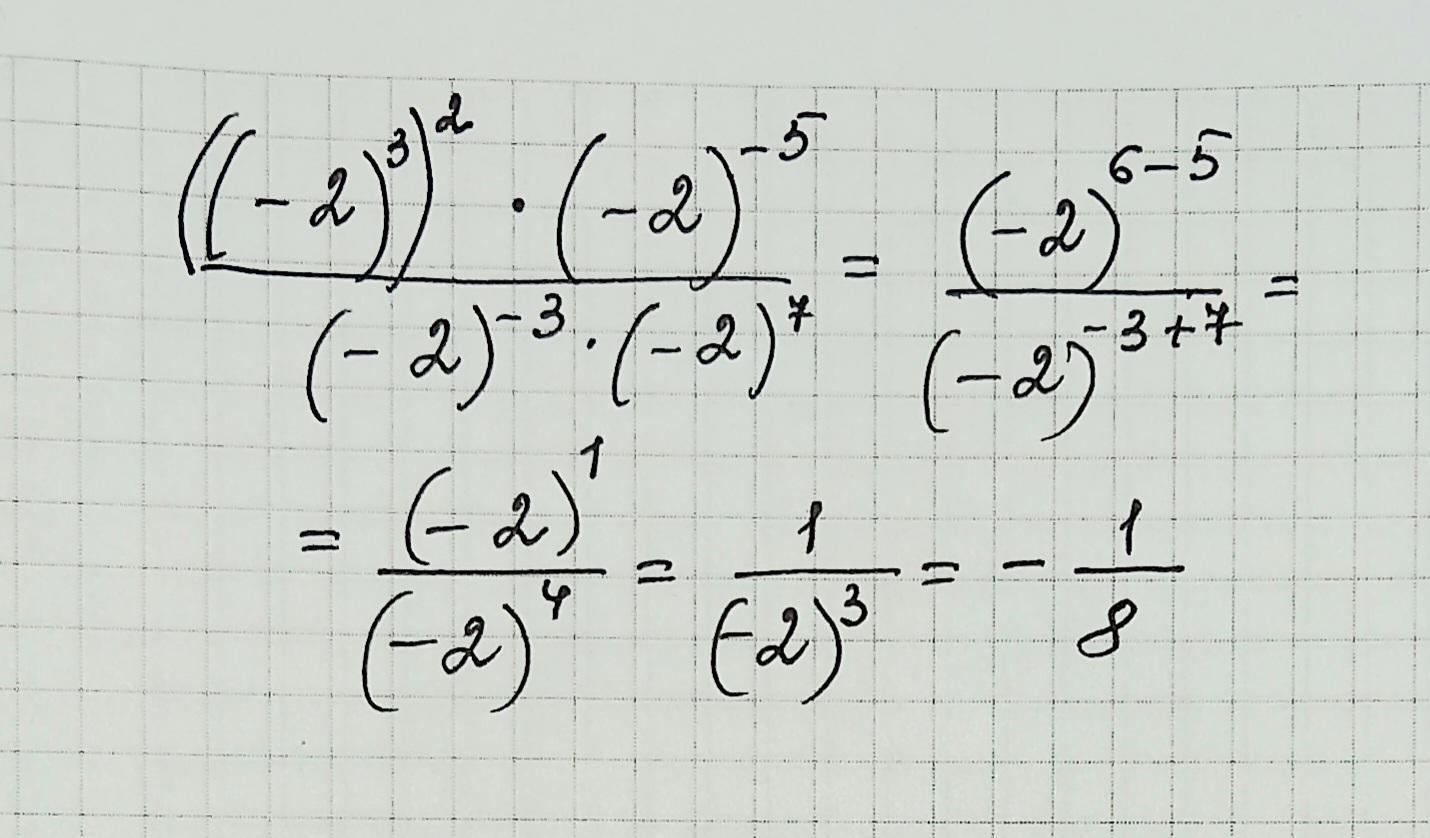 \frac{((-2)^3)^2 \cdot (-2)^{-5}}{(-2)^{-3} \cdot (-2)^7} = \frac{(-2)^{6-5}}{(-2)^{-3+7}} =
= \frac{(-2)^1}{(-2)^4} = \frac{1}{(-2)^3} = -\frac{1}{8}